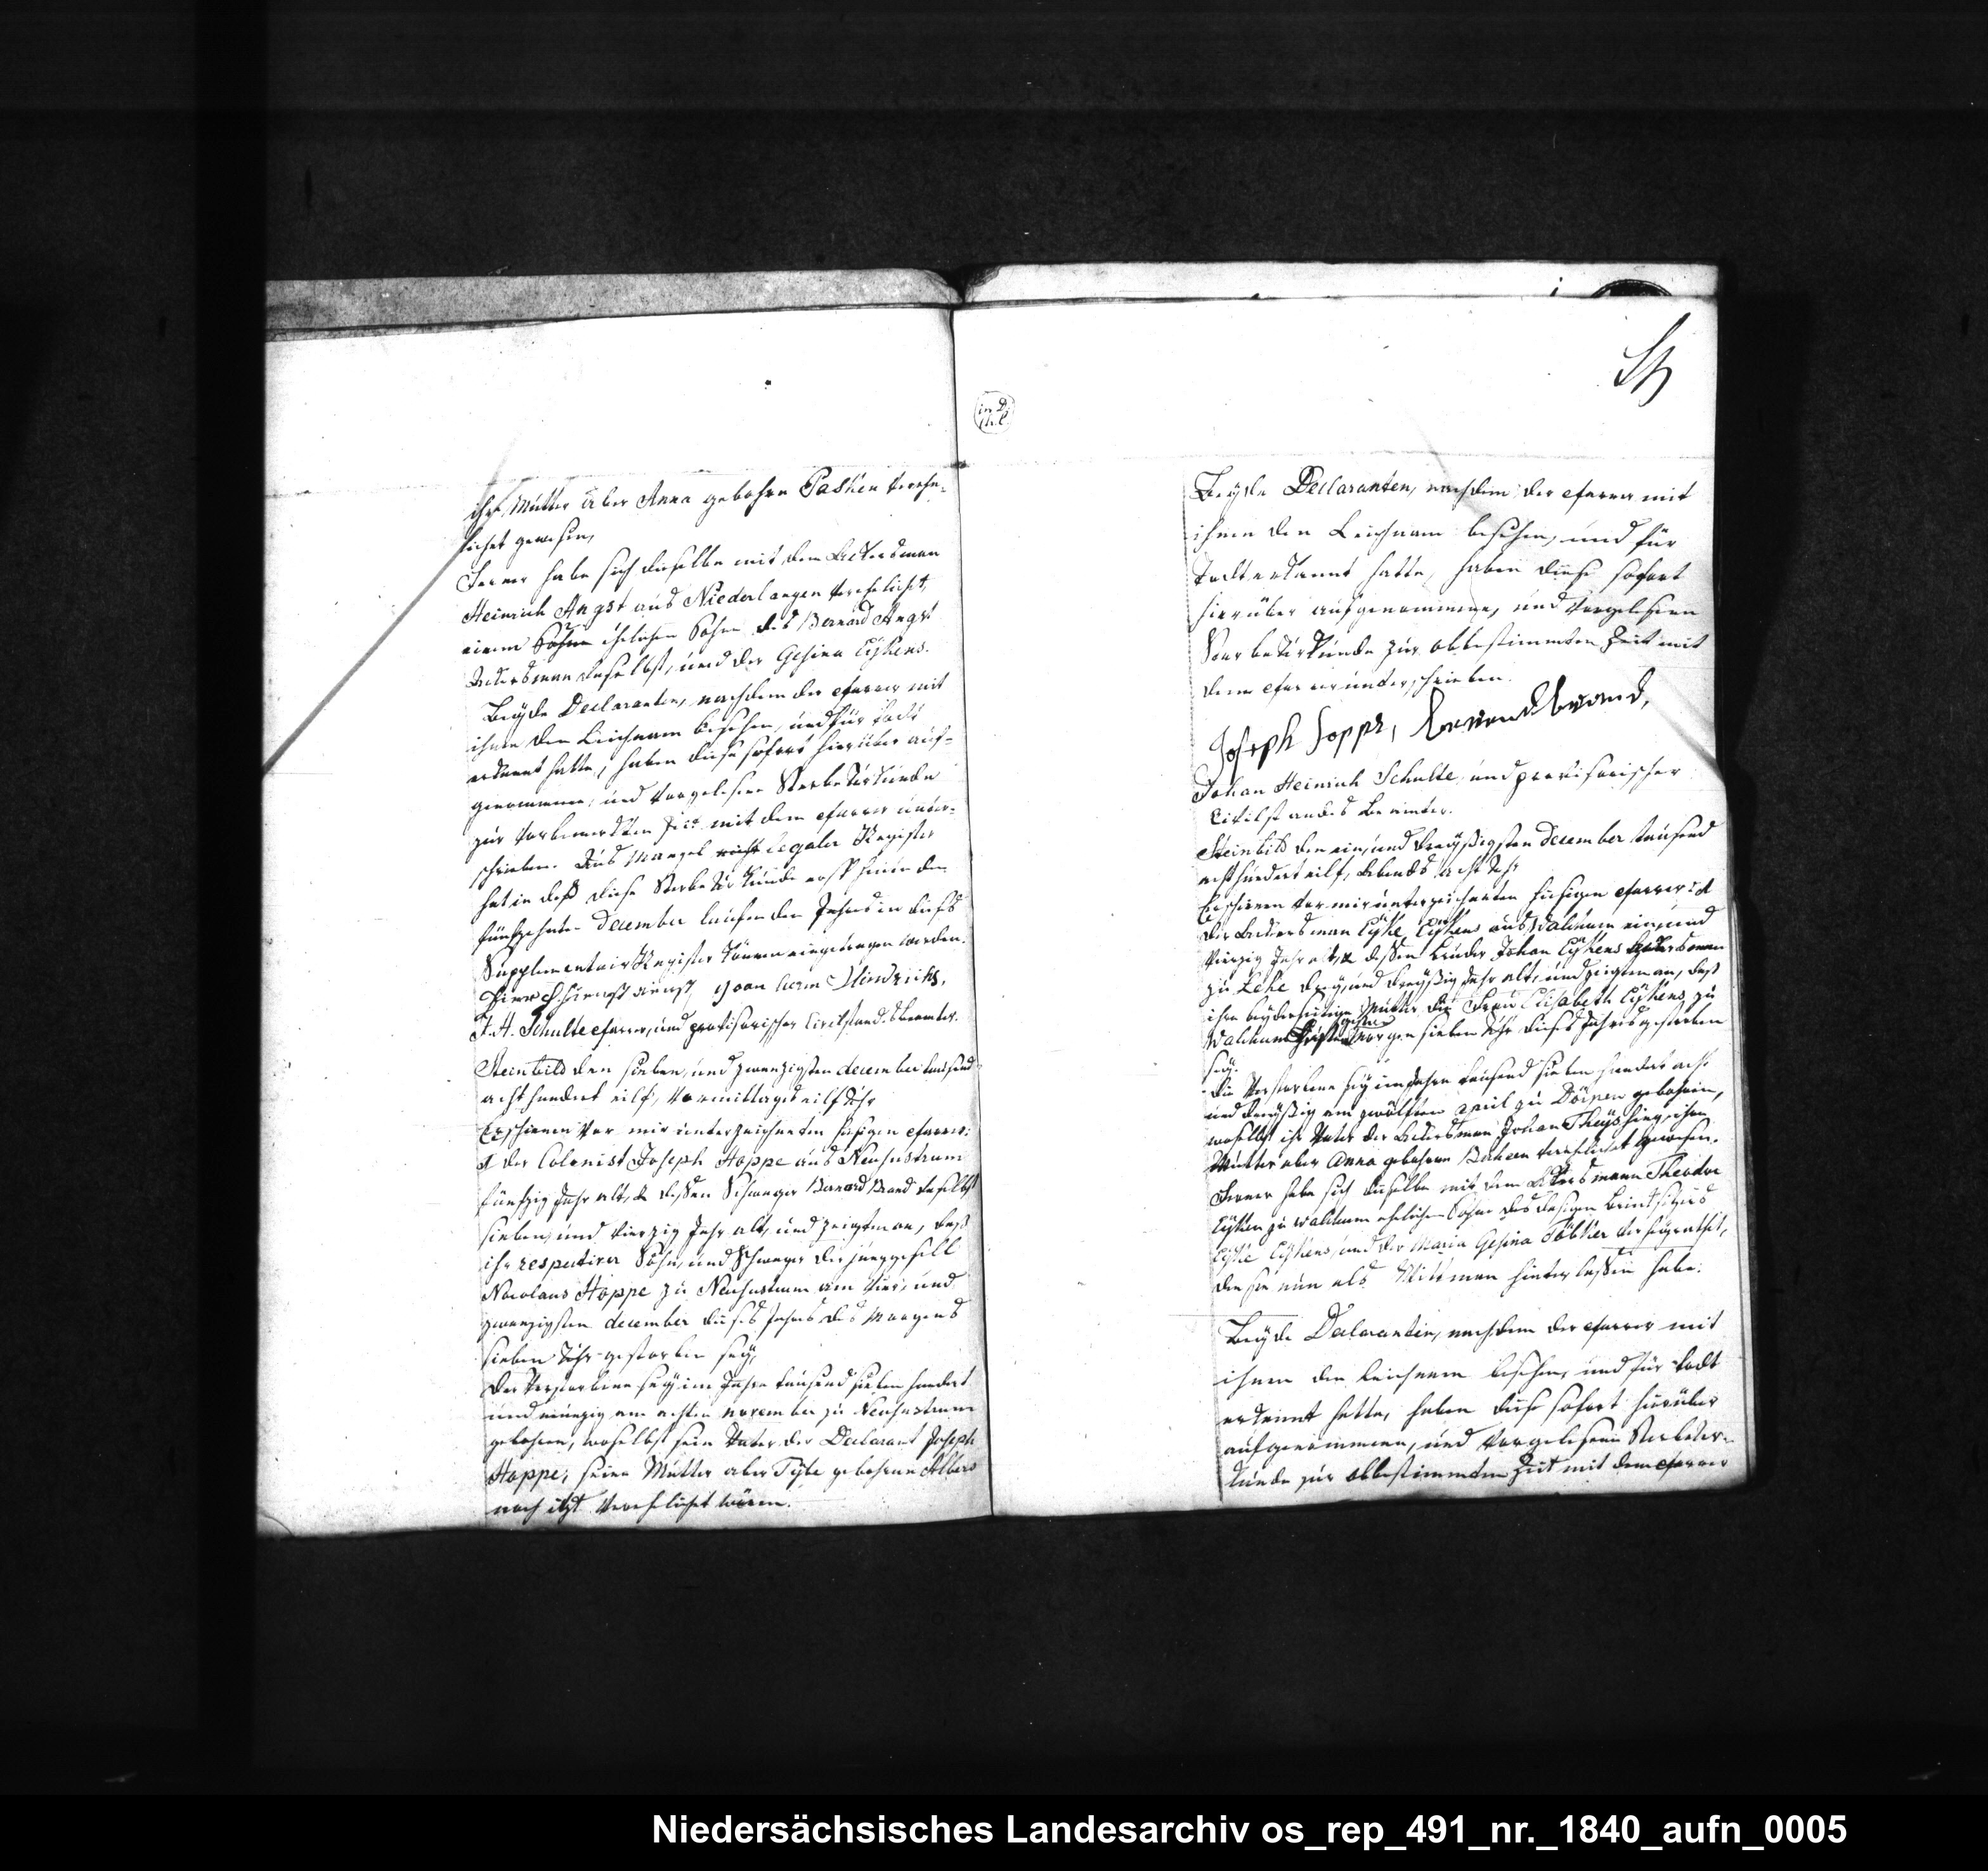 ihre Mutter aber Anna gebohrne Pasken verehe-
lichet gewesen,
Ferner habe sich dieselbe mit dem Ackersman
Heinrich Angst aus Niederlangen verehelichet,
einem Sohne ehelichen Sohn des Bernard Angst
Ackersman daselbst, und der Gesina Eijkens.
Beyde Declaranten, nachdem der Pfarrer mit
ihnen den Leichnam besehen, und für todt
erkennt hatte, haben diese sofort hierüber auf-
genommene, und vorgelesene Sterbe Urkunde
zur vorbemerkten Zeit mit dem Pfarrer unter-
schrieben. Aus Mangel nicht legaler Register
hat in deß diese Sterbe Urkunde erst heute den
fünfzehnten December laufenden Jahrs in dieses
Supplementair Register können eingetragen werden.
Joan herm Hindricks,
J. H. Schulte Pfarrer, und provisorischer Civilstands Beamter.
Steinbild den sieben, und zwanzigsten december tausend
acht hundert eilf, Vormittages eilf Uhr
Erschienen vor mir unterzeichneten hiesigen Pfarrer:
der Colonist Joseph Hoppe aus Neusustrum
fünfzig Jahr alt, & dessen Schwager Bernard Brand daselbst
sieben, und vierzig Jahr alt, und zeigten an, daß
ihr respectiver Sohn, und Schwager der Junggesell
Nicolaus Hoppe zu Neusustrum am vier, und
zwanzigsten december dieses Jahrs des Morgens
sieben Uhr gestorben sey,
Der Verstorbene sey im Jahre tausend sieben hundert
und neunzig am achten november zu Neusustrum
gebohren, woselbst sein Vater der Declarant Joseph
Hoppe, seine Mutter aber Tybe gebohrne Albers
noch itzt verehelichet wären.
Beyde Declaranten, nachdem der Pfarrer mit
ihnen den Leichnam besehen, und für
Todt erkannt hatte, haben diese sofort
hierüber aufgenommene, und vorgelesene
Sterbe Urkunde zur obbestimmten Zeit mit
dem Pfarrer unterschrieben.
Joseph Hoppe, Berend Brand,
Johan Heinrich Schulte und provisorischer
Civilstandes Beamter.
Steinbild den ein, und dreyßigsten december tausend
acht hundert eilf, Abends acht Uhr
Erschienen vor mir unterzeichneten hiesigen Pfarrer:
der Ackersman Eijke Eijkens aus Walchum ein, und
vierzig Jahr alt, & dessen Bruder Johan Eijkens Ackersman
zu Lehe drey, und dreyßig Jahr alt, und zeigten an, daß
ihre beyderseitige Mutter die Frau Elisabeth Eijkens zu
Walchum gestern Morgen sieben Uhr dieses Jahrs gestorben
sey.
Die Verstorbene sey im Jahre tausend sieben hundert acht
und dreyßig am zwölften April zu Dörpen gebohren,
woselbst ihr Vater der Ackersman Johan Theijs hing, ihre
Mutter aber Anna gebohrne verehelichet gewesen.
Ferner habe sich dieselbe mit dem Ackersmann Theodor
Eijken zu Walchum ehelichen Sohne des dasigen
Eijke Eijkens, und der Maria Gesina Többen
den sie nun als Wittman hinterlassen habe.
Beyde Declaranten, nachdem der Pfarrer mit
ihnen den Leichnam besehen, und für todt
erkennt hatte, haben diese sofort hierüber
aufgenommene, und vorgelesene Sterbe Ur-
kunde zur obbestimmten Zeit mit dem Pfarrer
Niedersächsisches Landesarchiv os_rep_491_nr._1840_aufn_0005